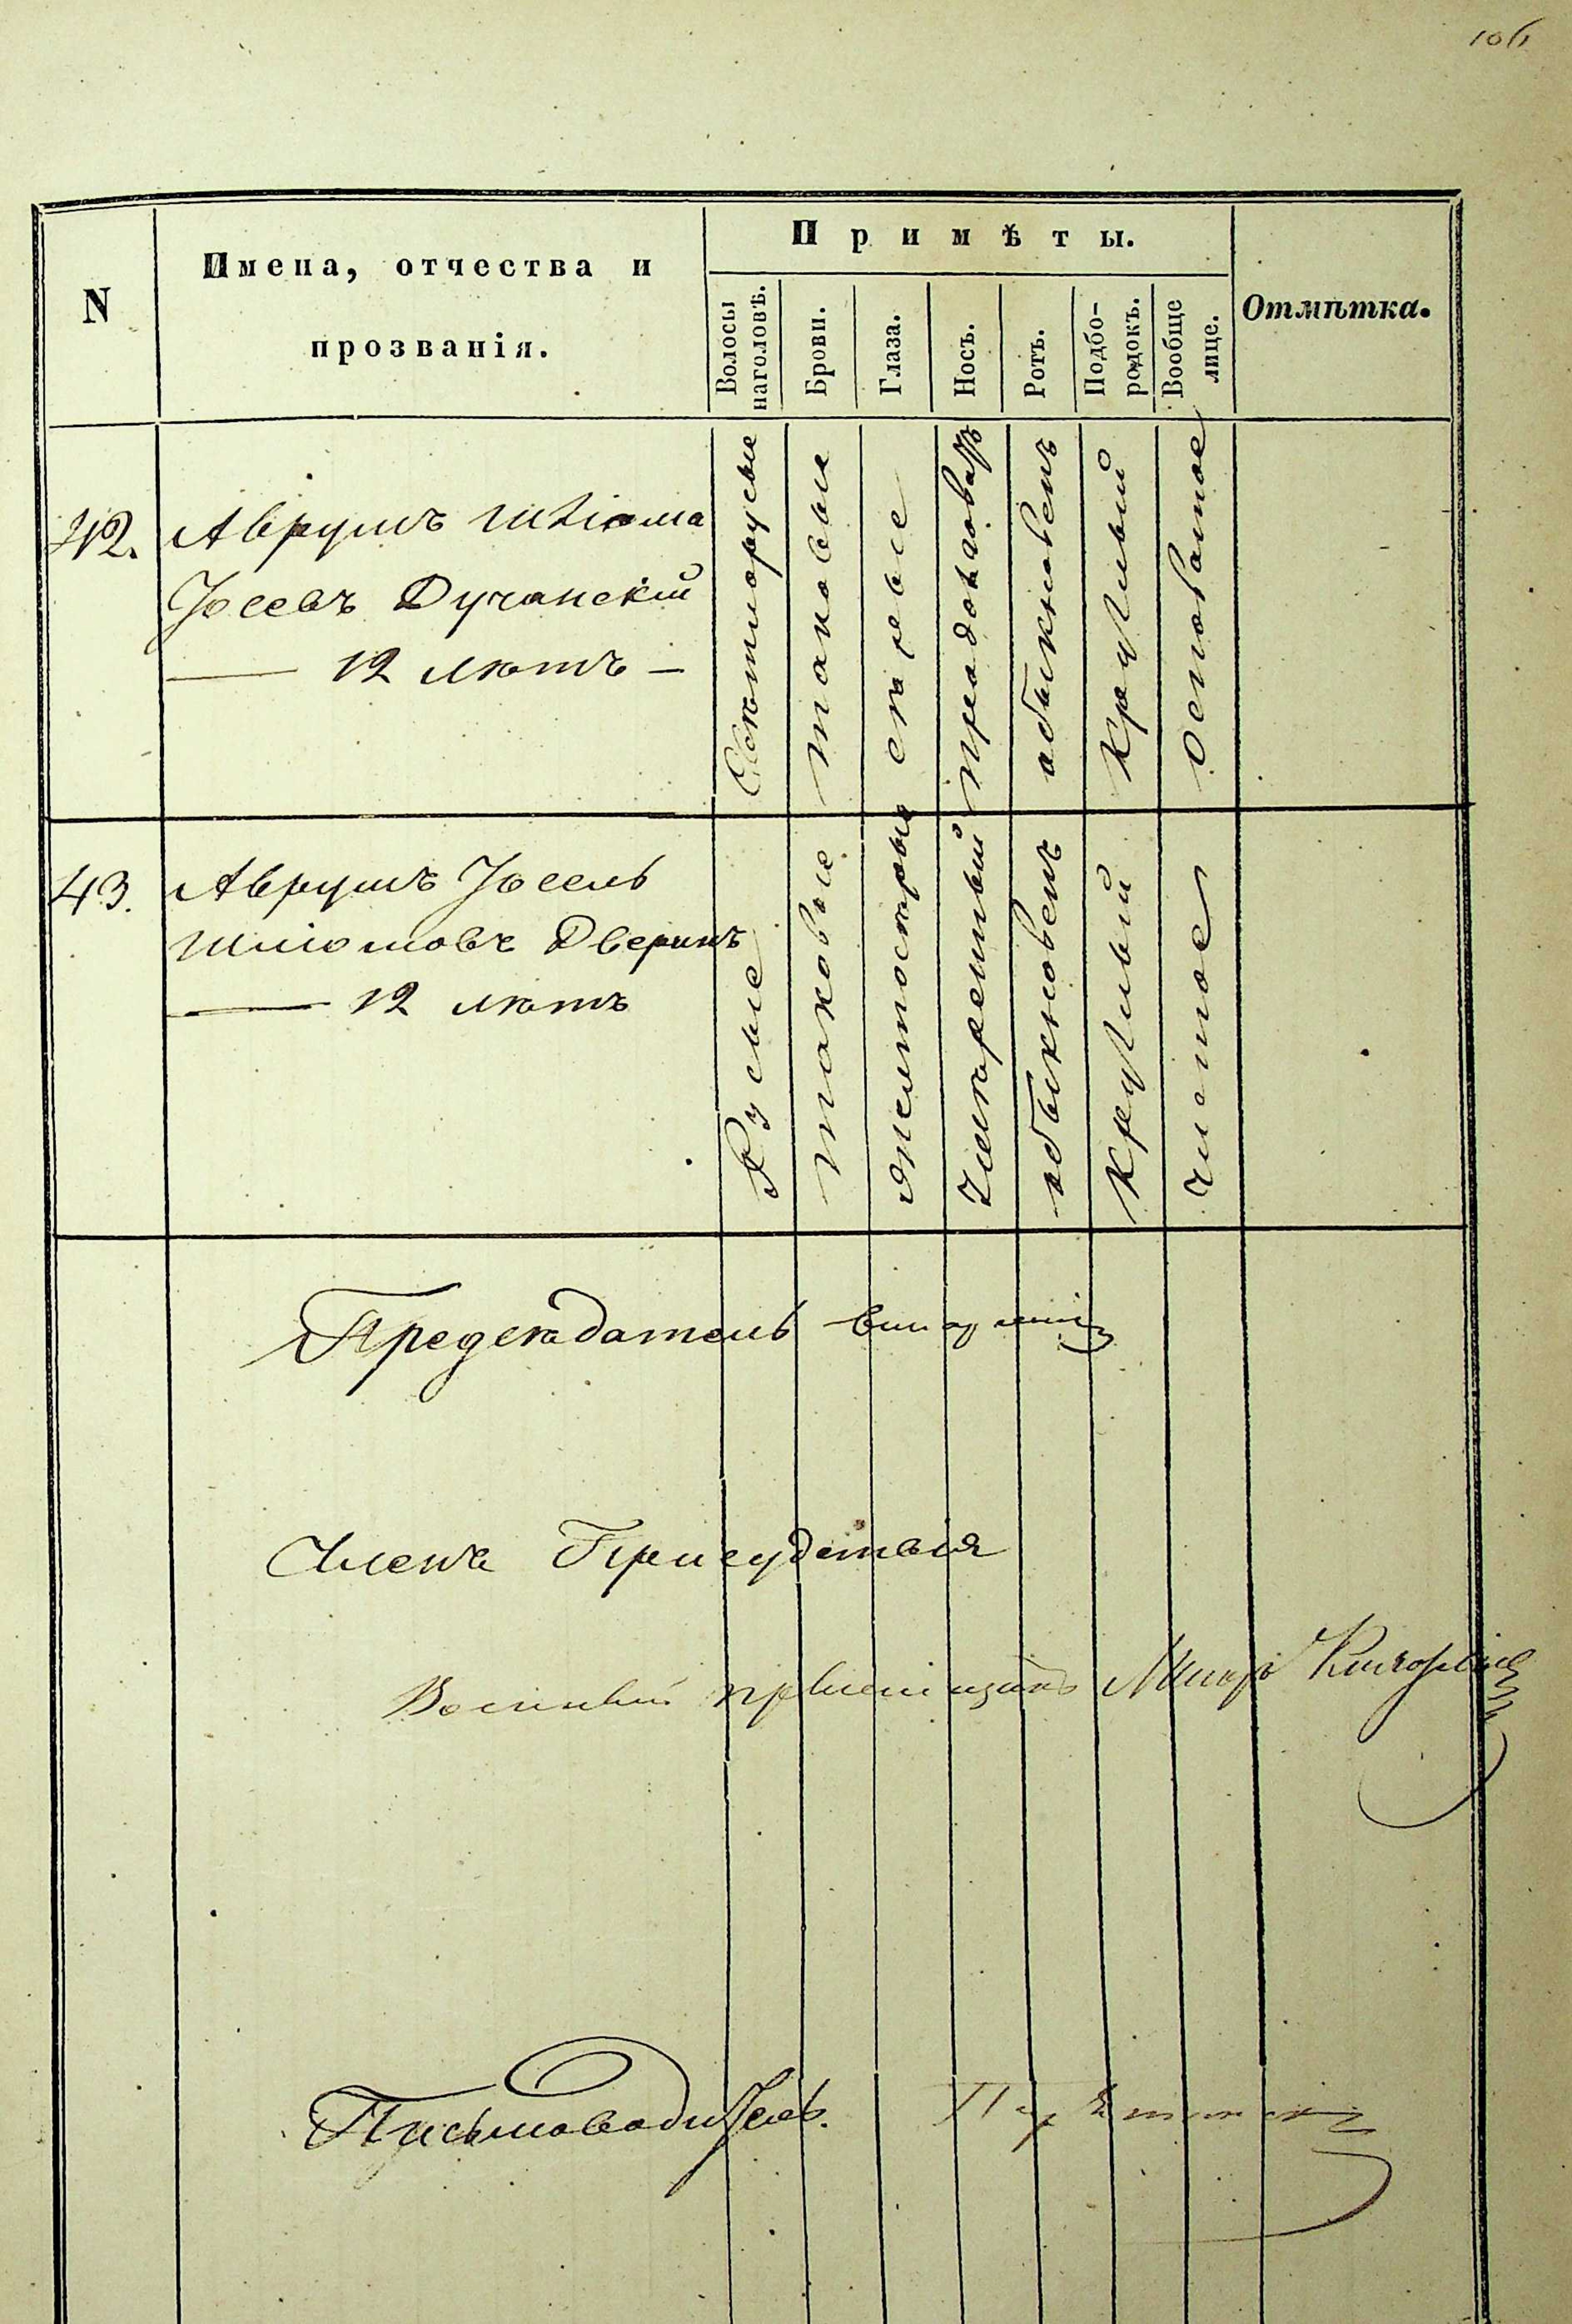 106
N
Имена, отчества и
прозванія.
Примѣты.
Волосы
наголовѣ.
Брови.
Глаза.
Носъ.
Ротъ.
Подбо-
родокъ.
Вообще
лице.
Отмѣтка.
42.
Аврумъ Шліома
Іосевъ Дучанскій
— 12 лѣтъ —
Свѣтлорусые
таковые
сѣрые
продолговатъ
обыкновенъ
круглый
осповатое
43.
Аврумъ Іосель
Шліомовъ Дверинъ
— 12 лѣтъ
Русые
таковые
желтосѣрые
умѣренный
обыкновенъ
круглый
чистое
Предсѣдатель
Члены Присудствія
Военный Маіоръ
Письмоводитель.